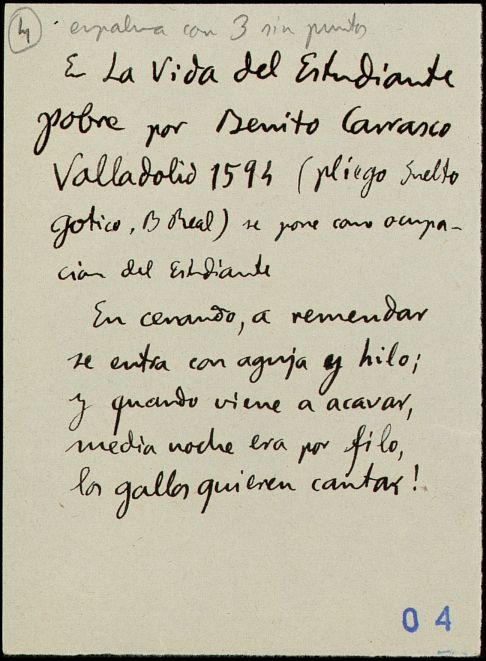 4 empalma con 3 sin puntos
En La Vida del Estudiante
pobre por Benito Carrasco
Valladolid 1594 (pliego suelto
gotico, B Real) se pone como ocupa-
cion del Estudiante
En cenando, a remendar
se entra con aguja y hilo;
y quando viene a acavar,
media noche era por filo,
los gallos quieren cantar!
04